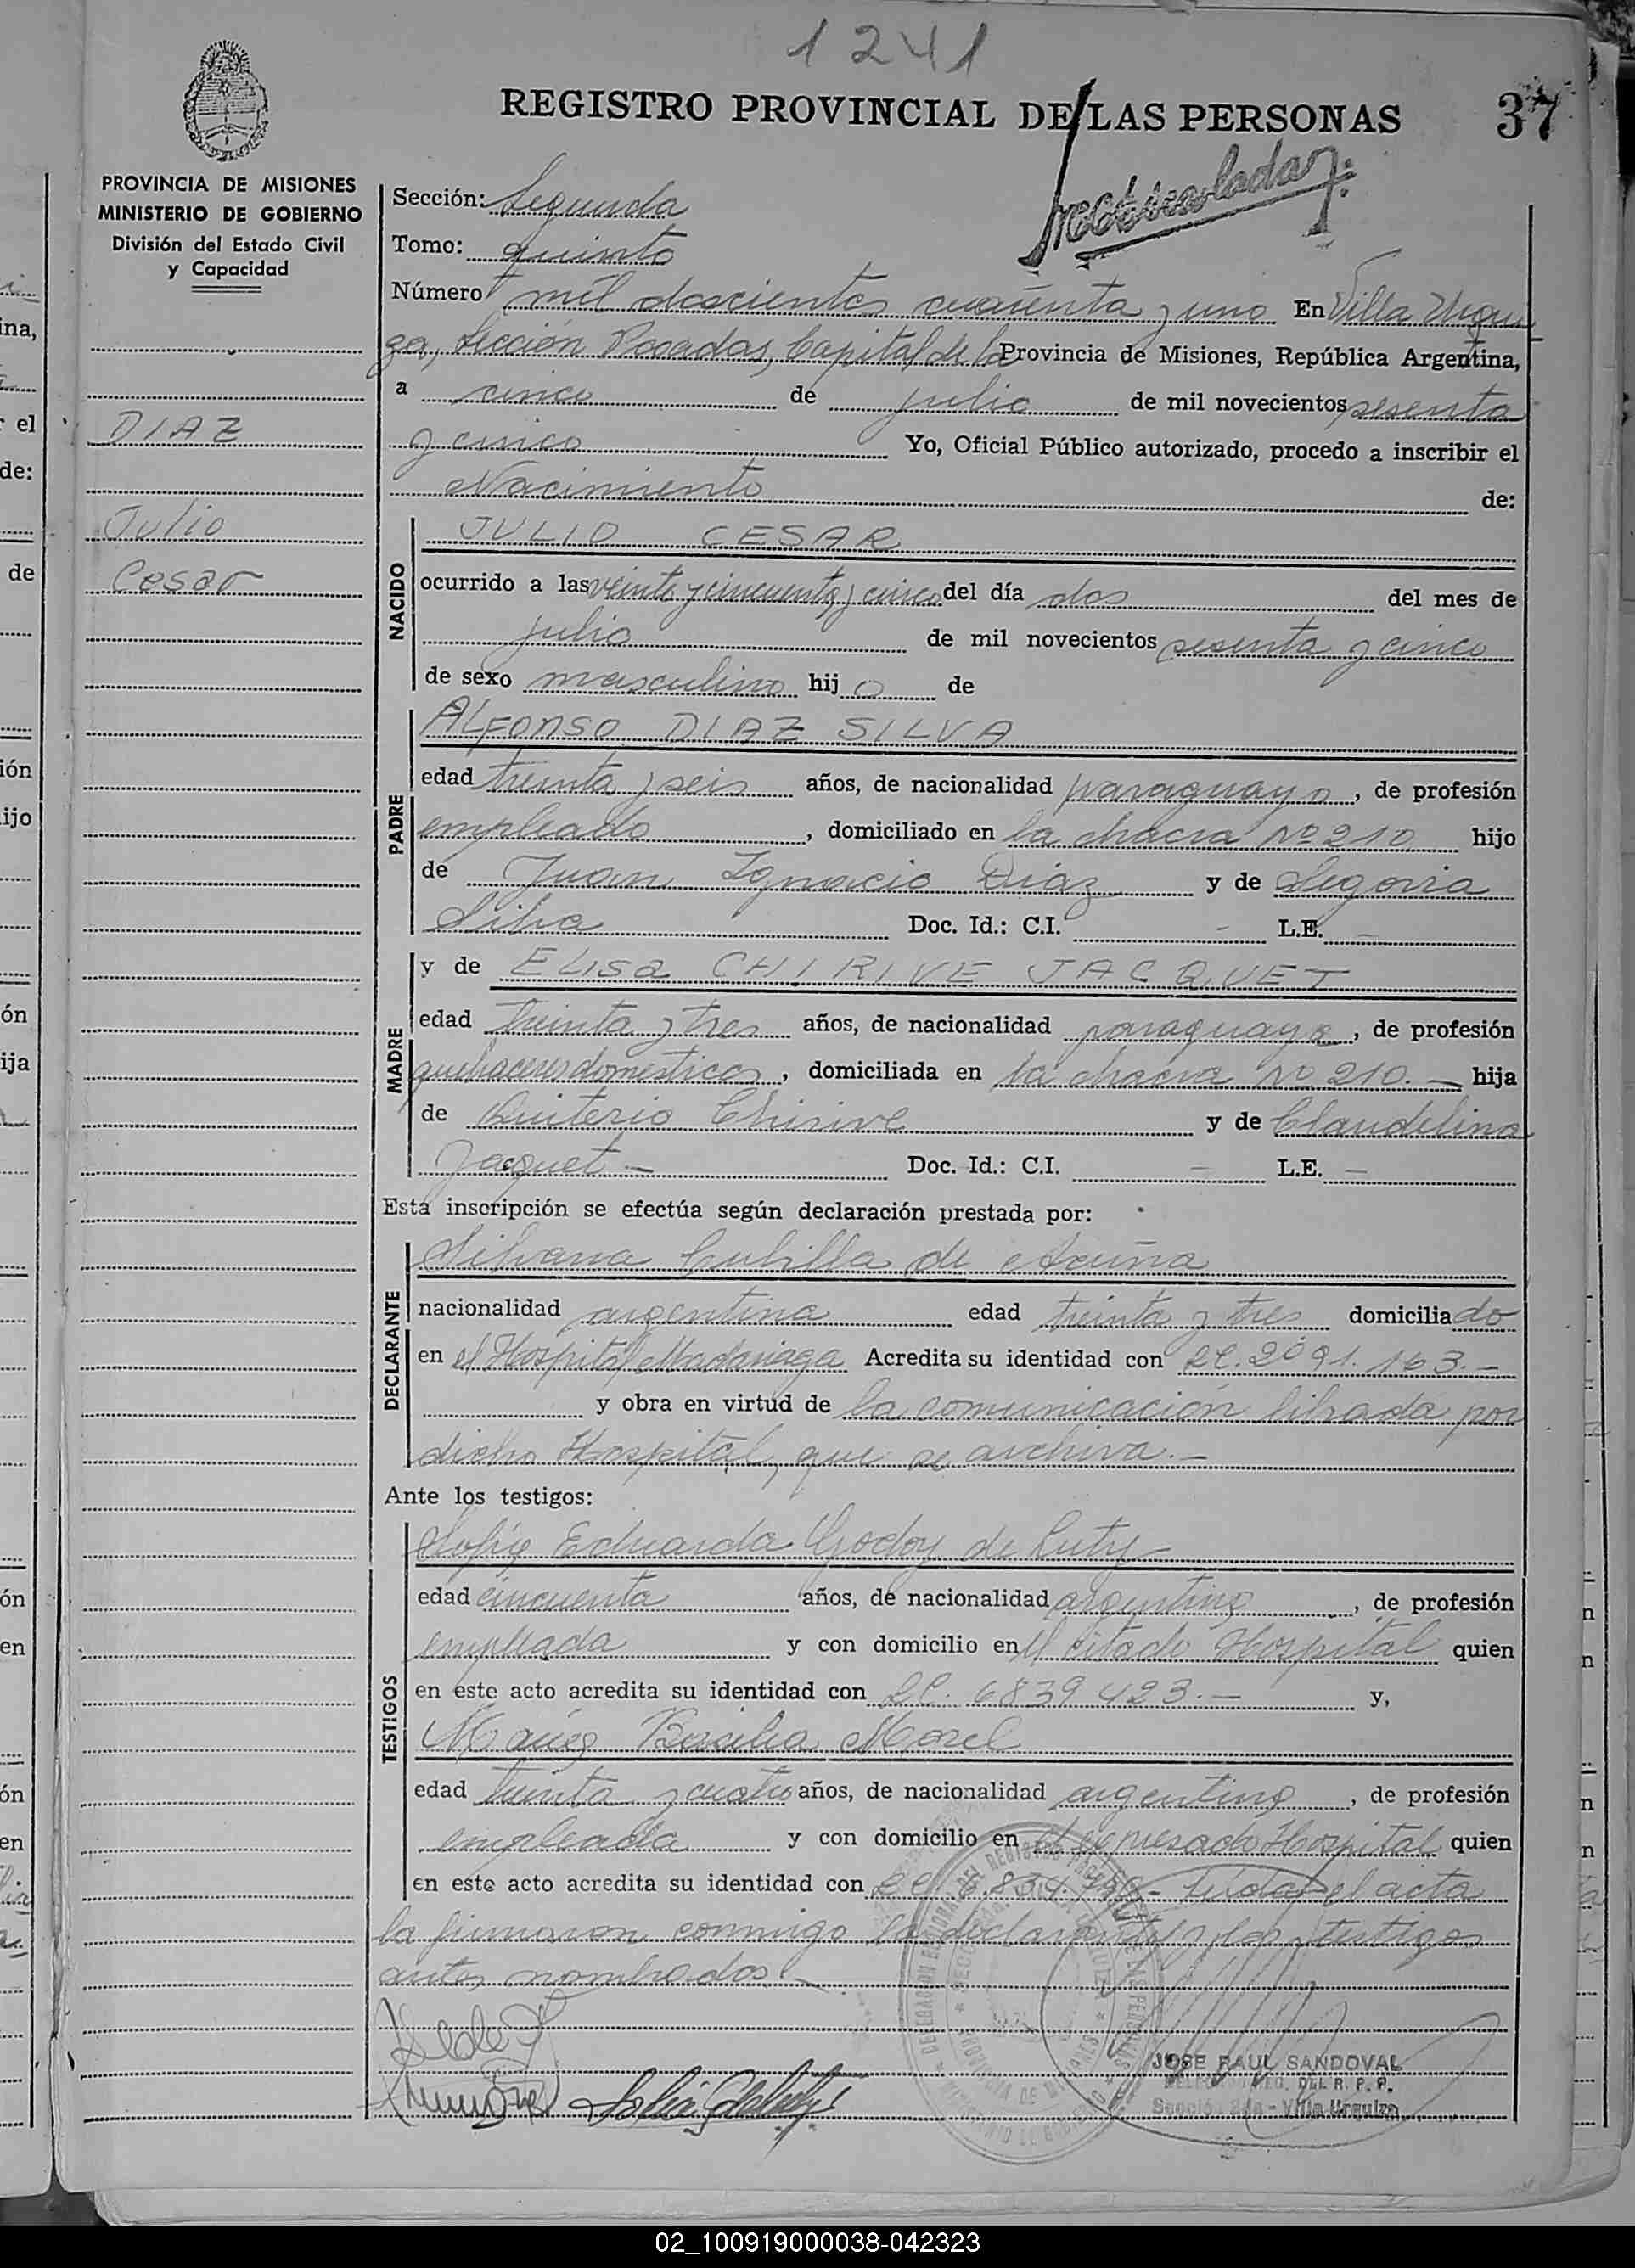 1241
REGISTRO PROVINCIAL DE LAS PERSONAS
37
PROVINCIA DE MISIONES
MINISTERIO DE GOBIERNO
División del Estado Civil
y Capacidad
DIAZ
Julio
Cesar
Sección: Segunda
Tomo: quinto
Número mil doscientos cuarenta y uno En Villa Urqui
za, Sección Posadas, Capital de la Provincia de Misiones, República Argentina,
a cinco de julio de mil novecientos sesenta
y cinco Yo, Oficial Público autorizado, procedo a inscribir el
Nacimiento de:
NACIDO
JULIO CESAR
ocurrido a las veinte y cincuenta y cinco del día dos del mes de
julio de mil novecientos sesenta y cinco
de sexo masculino hijo de
PADRE
ALFONSO DIAZ SILVA
edad treinta y seis años, de nacionalidad paraguayo, de profesión
empleado, domiciliado en la chacra Nº 210 hijo
de Juan Ignacio Diaz y de Segovia
Silva Doc. Id.: C.I. - L.E. -
MADRE
y de ELISA CHIRIVE JACQUET
edad treinta y tres años, de nacionalidad paraguaya, de profesión
quehaceres domésticos, domiciliada en la chacra Nº 210.- hija
de Quiterio Chirive y de Claudelina
Jacquet - Doc. Id.: C.I. - L.E. -
Esta inscripción se efectúa según declaración prestada por:
DECLARANTE
Silvana Cubilla de Acuña
nacionalidad argentina edad treinta y tres domiciliado
en el Hospital Madariaga Acredita su identidad con LC. 2091.163.-
y obra en virtud de la comunicación librada por
dicho Hospital, que se archiva.-
Ante los testigos:
TESTIGOS
Sofía Eduarda Godoy de Luty
edad cincuenta años, de nacionalidad argentina, de profesión
empleada y con domicilio en el citado Hospital quien
en este acto acredita su identidad con LC. 6839423.- y,
María Basilia Morel
edad treinta y cuatro años, de nacionalidad argentina, de profesión
empleada y con domicilio en el expresado Hospital quien
en este acto acredita su identidad con LC leida el acta
la firmaron conmigo la declarante y los testigos
antes nombrados.-
JOSE RAUL SANDOVAL
DEL R. P. P.
Sección 2da - Villa Urquiza
02_100919000038-042323